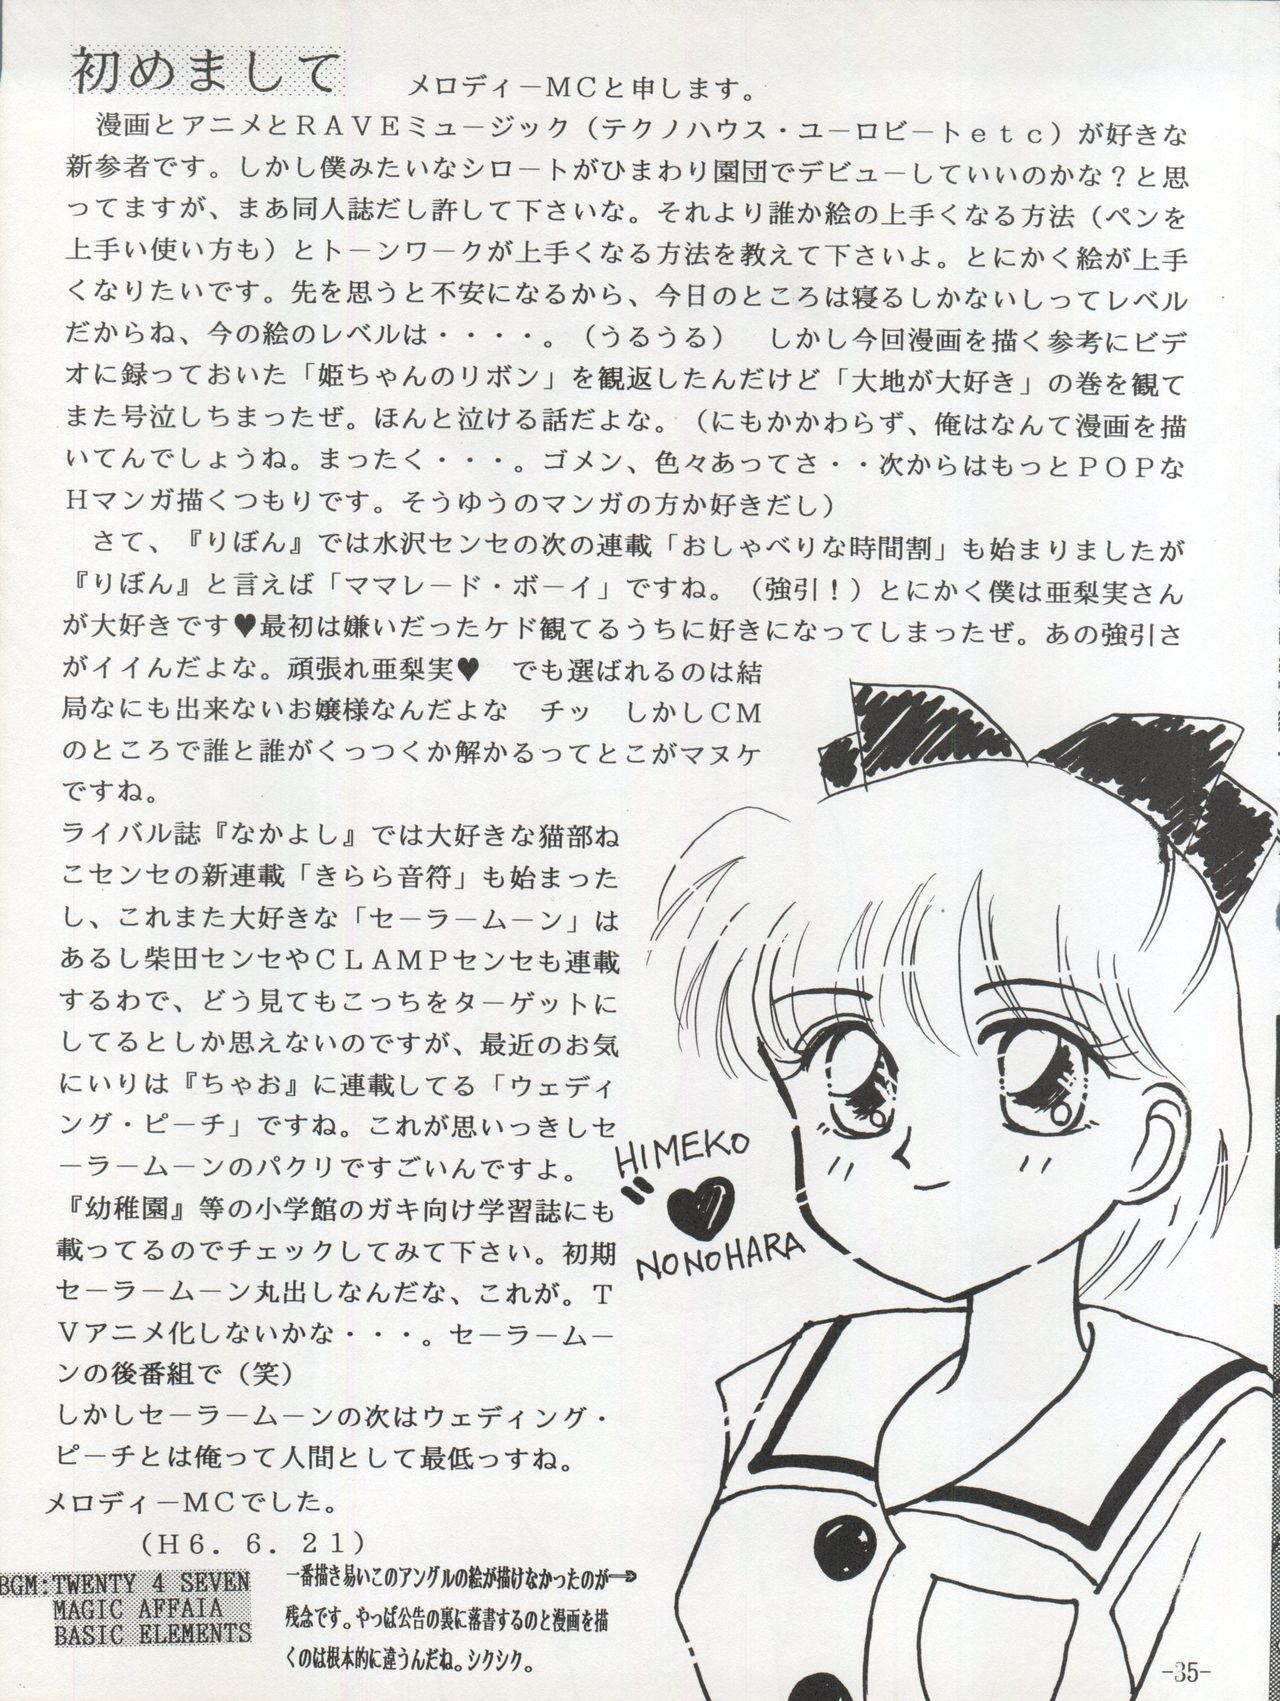 初めまして
メロディーMCと申します。
漫画とアニメとRAVEミュージック（テクノハウス・ユーロビートetc）が好きな
新参者です。しかし僕みたいなシロートがひまわり園団でデビューしていいのかな？と思
ってますが、まあ同人誌だし許して下さいな。それより誰か絵の上手くなる方法（ペンを
上手い使い方も）とトーンワークが上手くなる方法を教えて下さいよ。とにかく絵が上手
くなりたいです。先を思うと不安になるから、今日のところは寝るしかないしってレベル
だからね、今の絵のレベルは・・・・。（うるうる）　しかし今回漫画を描く参考にビデ
オに録っておいた「姫ちゃんのリボン」を観返したんだけど「大地が大好き」の巻を観て
また号泣しちまったぜ。ほんと泣ける話だよな。（にもかかわらず、俺はなんて漫画を描
いてんでしょうね。まったく・・・。ゴメン、色々あってさ・・次からはもっとPOPな
Hマンガ描くつもりです。そうゆうのマンガの方か好きだし）
さて、『りぼん』では水沢センセの次の連載「おしゃべりな時間割」も始まりましたが
『りぼん』と言えば「ママレード・ボーイ」ですね。（強引！）とにかく僕は亜梨実さん
が大好きです♥最初は嫌いだったケド観てるうちに好きになってしまったぜ。あの強引さ
がイイんだよな。頑張れ亜梨実♥　でも選ばれるのは結
局なにも出来ないお嬢様なんだよな　チッ　しかしCM
のところで誰と誰がくっつくか解かるってとこがマヌケ
ですね。
ライバル誌『なかよし』では大好きな猫部ね
こセンセの新連載「きらら音符」も始まった
し、これまた大好きな「セーラームーン」は
あるし柴田センセやCLAMPセンセも連載
するわで、どう見てもこっちをターゲットに
してるとしか思えないのですが、最近のお気
にいりは『ちゃお』に連載してる「ウェディ
ング・ピーチ」ですね。これが思いっきしセ
ーラームーンのパクリですごいんですよ。
『幼稚園』等の小学館のガキ向け学習誌にも
載ってるのでチェックしてみて下さい。初期
セーラームーン丸出しなんだな、これが。T
Vアニメ化しないかな・・・。セーラームー
ンの後番組で（笑）
しかしセーラームーンの次はウェディング・
ピーチとは俺って人間として最低っすね。
メロディーMCでした。
（H6．6．21）
BGM:TWENTY 4 SEVEN
MAGIC AFFAIA
BASIC ELEMENTS
一番描き易いこのアングルの絵が描けなかったのが⇒
残念です。やっぱ公告の裏に落書するのと漫画を描
くのは根本的に違うんだね。シクシク。
HIMEKO
NONOHARA
-35-